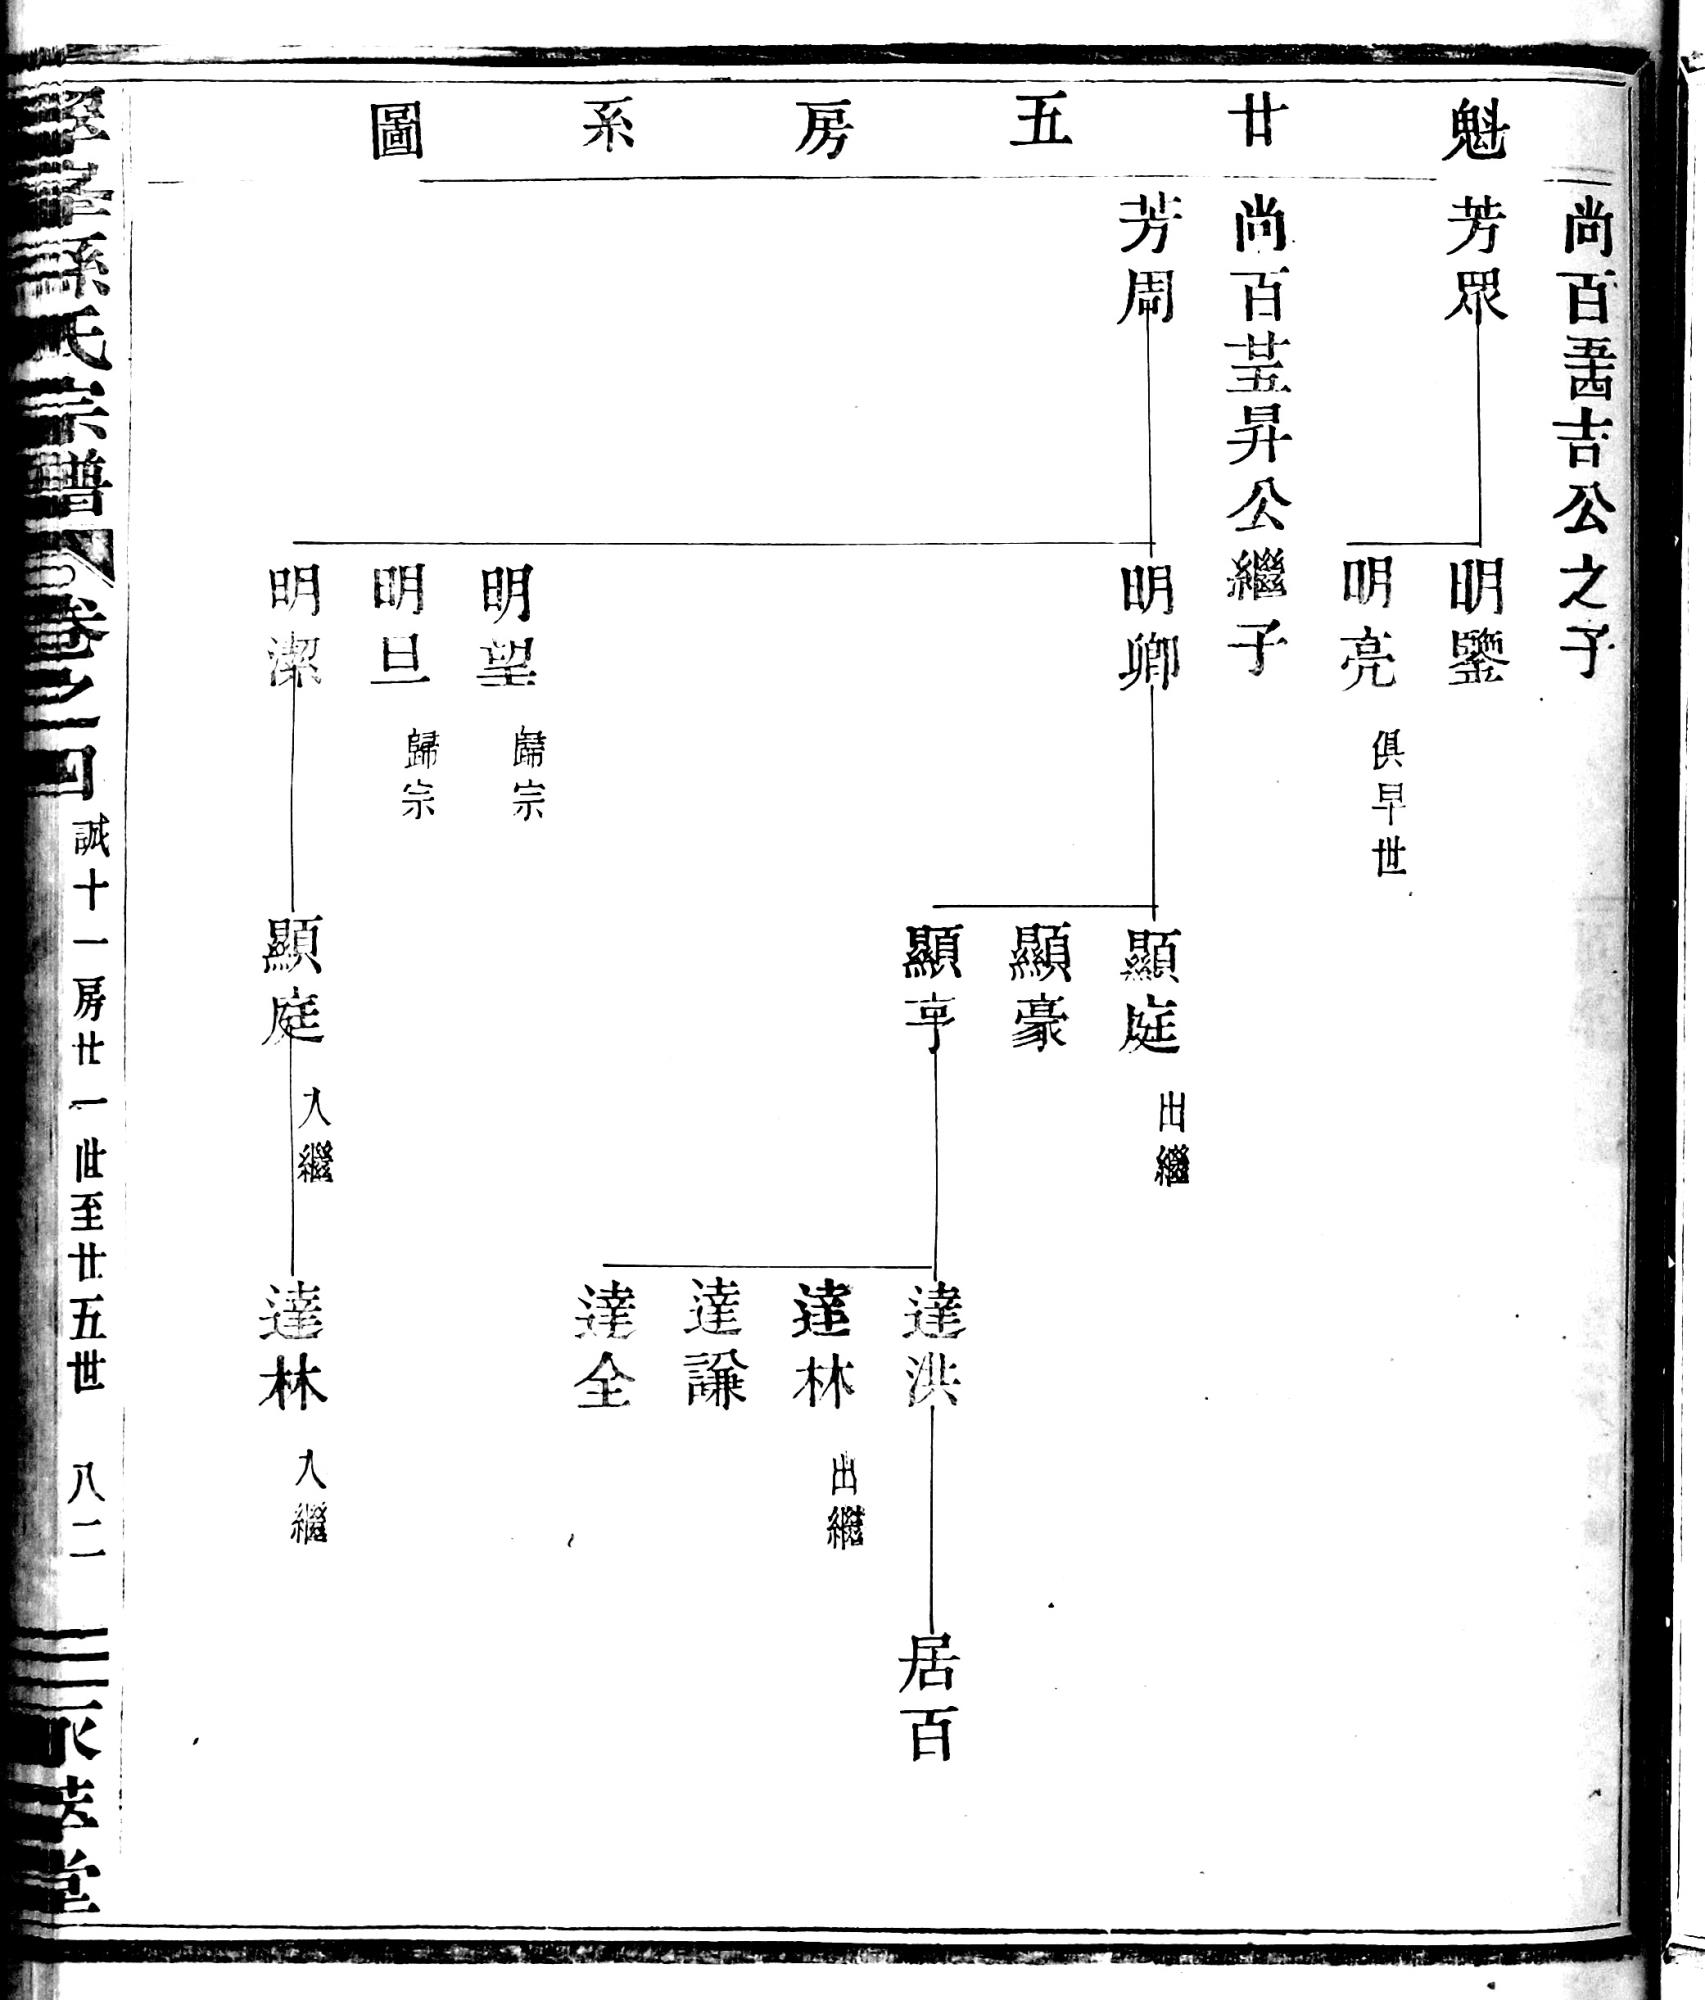 魁廿五房系圖
尚百五十四吉公之子
芳眾
明鑒
明亮 俱早世
尚百廿五昇公繼子
芳周
明卿
明望 歸宗
明旦 歸宗
明潔
顯庭 出繼
顯豪
顯亨
顯庭 入繼
達洪
達林 出繼
達謙
達全
達林 入繼
居百
孫氏宗譜
卷之四
誠十一房廿一世至廿五世
八二
堂